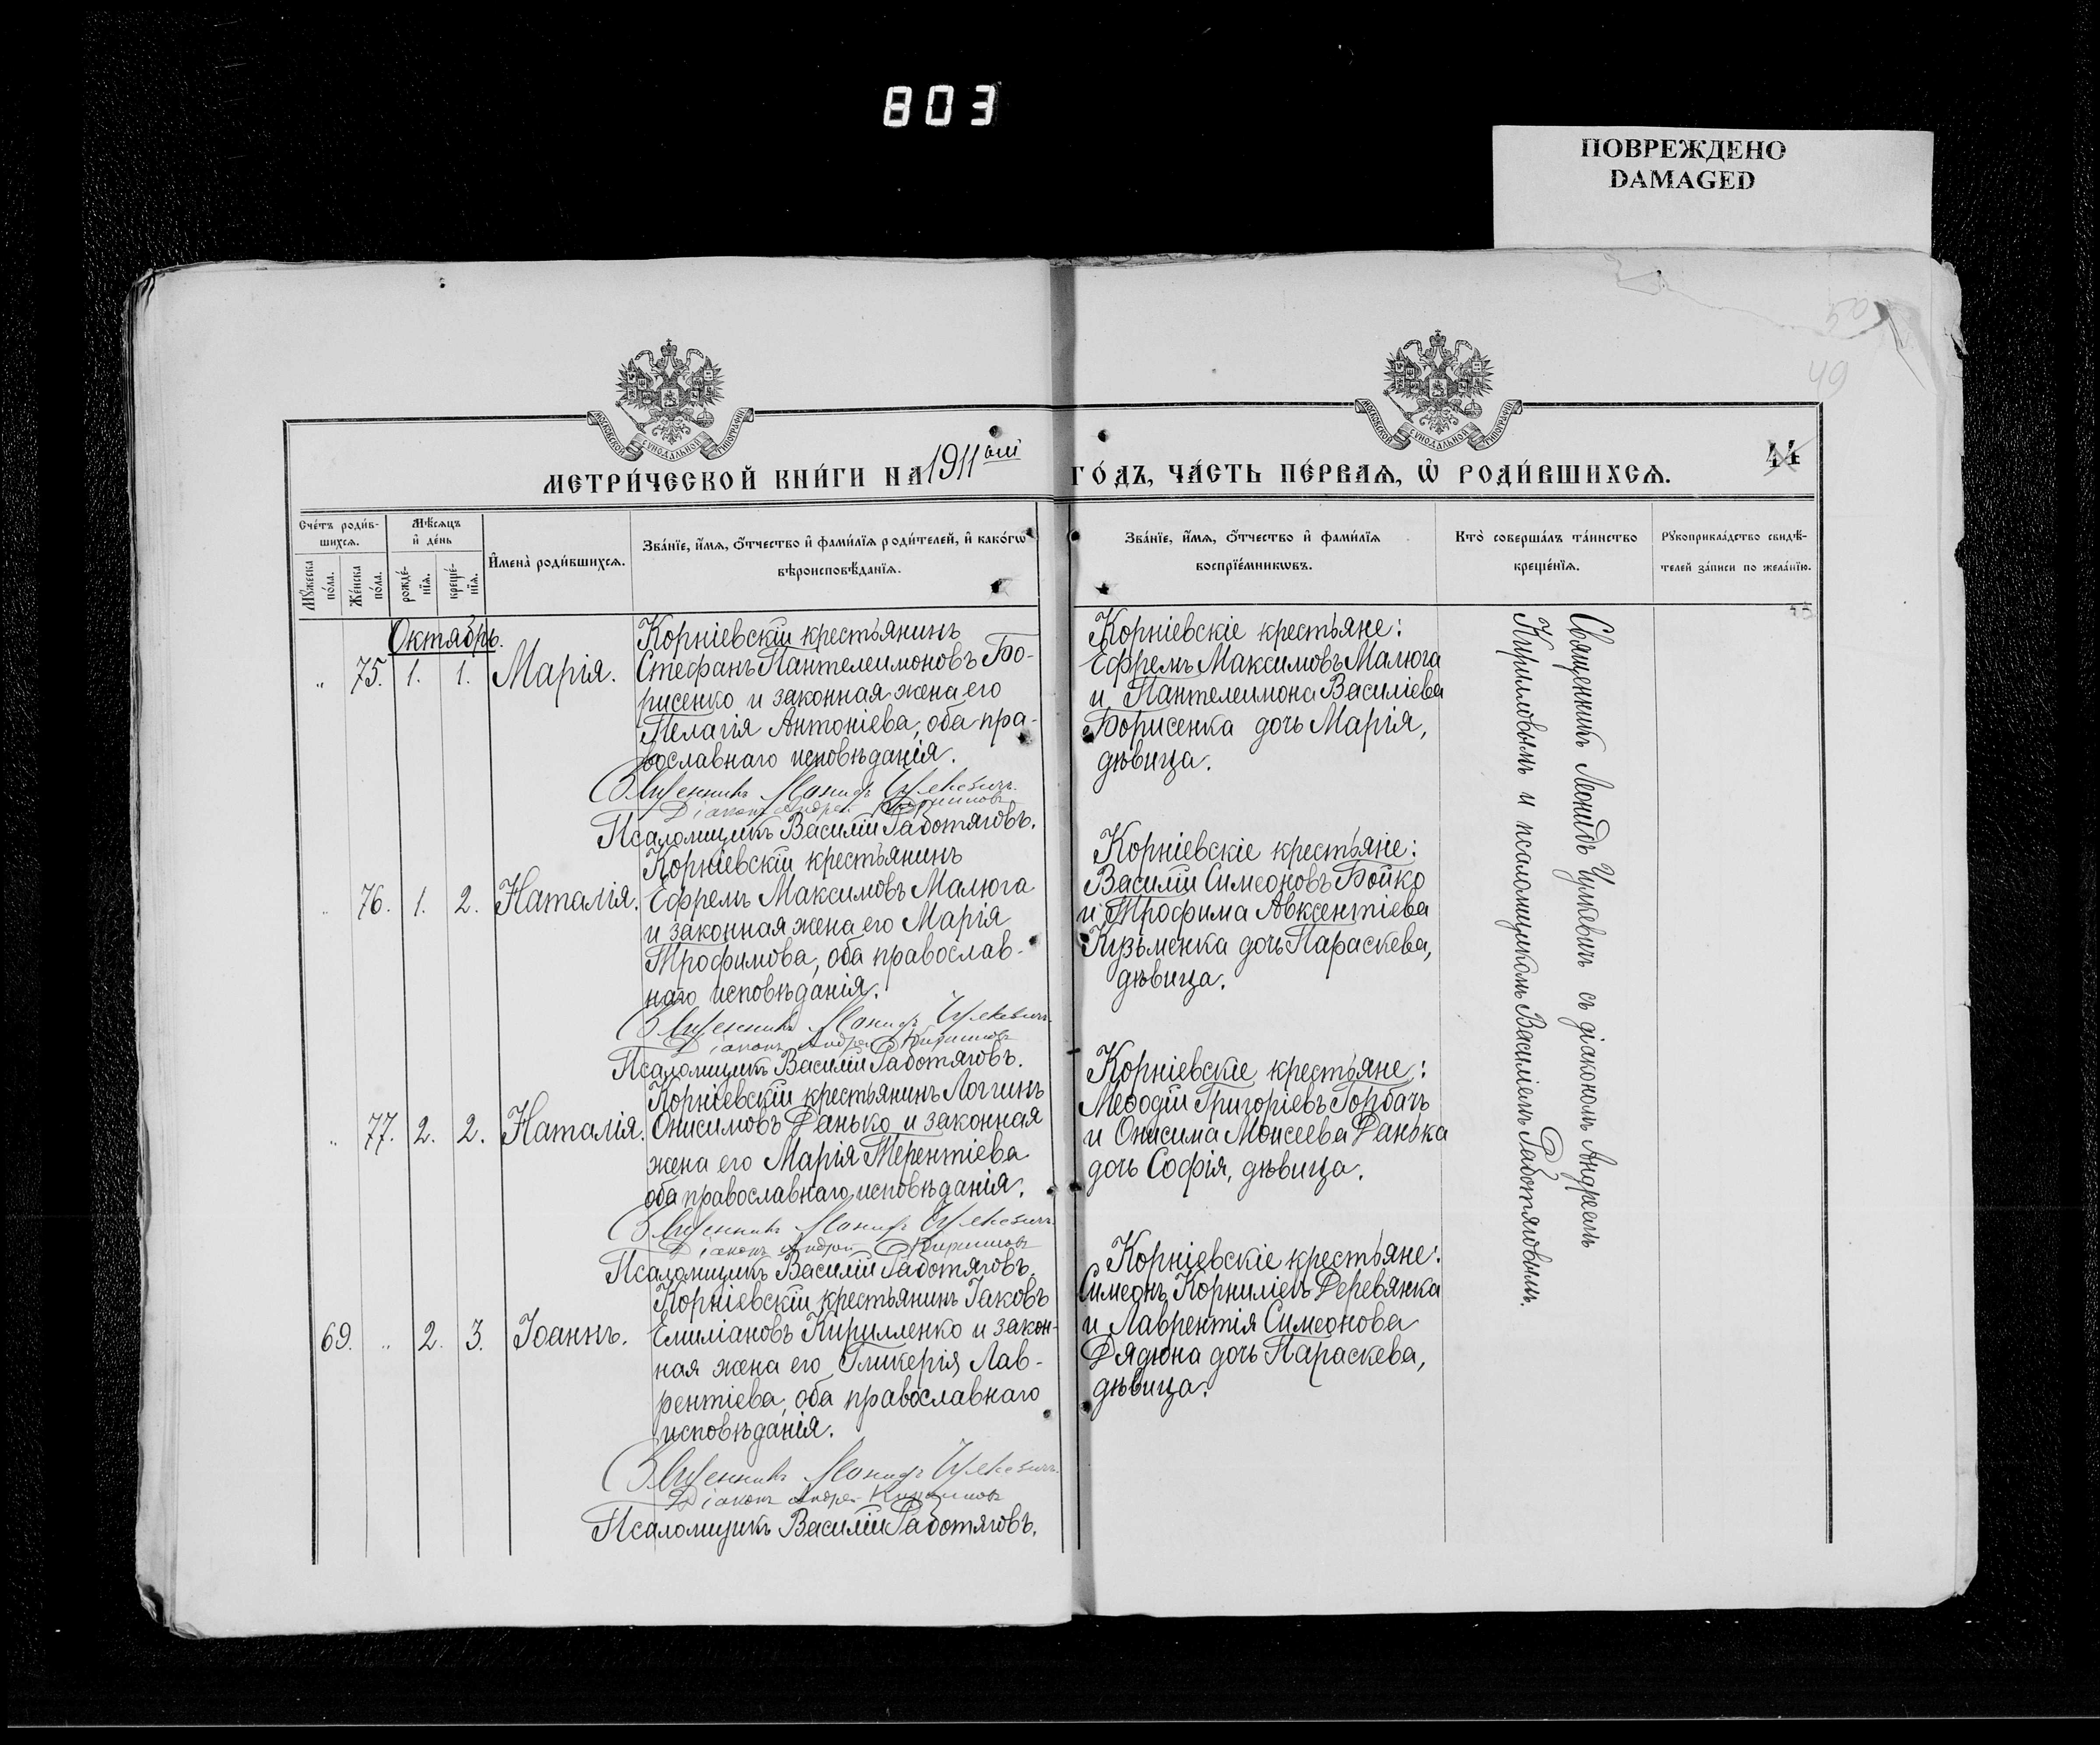 803
ПОВРЕЖДЕНО
DAMAGED
50
49
МОСКОВСКОЙ СѴНОДАЛЬНОЙ ТИПОГРАФІИ
МОСКОВСКОЙ СѴНОДАЛЬНОЙ ТИПОГРАФІИ
44
МЕТРИ́ЧЕСКОЙ КНИ́ГИ НА 1911ый ГО́ДЪ, ЧА́СТЬ ПЕ́РВАѦ, Ѡ҆ РОДИ́ВШИХСѦ.
Сче́тъ роди́в-
шихсѧ.
Мꙋ́жеска
по́ла.
Же́нска
по́ла.
Мѣ́сѧцъ
и҆ де́нь
рожде́-
нїѧ.
креще́-
нїѧ.
И҆мена̀ роди́вшихсѧ.
Зва́нїе, и҆́мѧ, ѻ҆́тчество и҆ фами́лїѧ роди́телей, и҆ како́гѡ
вѣроисповѣ́данїѧ.
Зва́нїе, и҆́мѧ, ѻ҆́тчество и҆ фами́лїѧ
воспрїе́мникѡвъ.
Кто̀ соверша́лъ та́инство
креще́нїѧ.
Рꙋкоприкла́дство свидѣ́-
телей за́писи по жела́нїю.
Октябрь.
„ 75. 1. 1. Марія.
Корніевскій крестьянинъ
Стефанъ Пантелеимоновъ Бо-
рисенко и законная жена его
Пелагія Антоніева, оба пра-
вославнаго исповѣданія.
Священникъ Леонидъ Цулкевичъ
Діаконъ Андрей Кирилловъ
Псаломщикъ Василій Работяговъ.
Корніевскіе крестьяне:
Ефремъ Максимовъ Малюга
и Пантелеимона Василіева
Борисенка дочь Марія,
дѣвица.
„ 76. 1. 2. Наталія.
Корніевскій крестьянинъ
Ефремъ Максимовъ Малюга
и законная жена его Марія
Трофимова, оба православ-
наго исповѣданія.
Священникъ Леонидъ Цулкевичъ
Діаконъ Андрей Кирилловъ
Псаломщикъ Василій Работяговъ.
Корніевскіе крестьяне:
Василій Симеоновъ Бойко
и Трофима Авксентіева
Кузьменка дочь Параскева,
дѣвица.
„ 77. 2. 2. Наталія.
Корніевскій крестьянинъ Логгинъ
Онисимовъ Данько и законная
жена его Марія Терентіева
оба православнаго исповѣданія.
Священникъ Леонидъ Цулкевичъ
Діаконъ Андрей Кирилловъ
Псаломщикъ Василій Работяговъ.
Корніевскіе крестьяне:
Меѳодій Григоріевъ Горбачъ
и Онисима Моисеева Данька
дочь Софія, дѣвица.
69. „ 2. 3. Іоаннъ.
Корніевскій крестьянинъ Іаковъ
Емиліановъ Кирилленко и закон-
ная жена его Гликерія Лав-
рентіева, оба православнаго
исповѣданія.
Священникъ Леонидъ Цулкевичъ
Діаконъ Андрей Кирилловъ
Псаломщикъ Василій Работяговъ.
Корніевскіе крестьяне:
Симеонъ Корниліевъ Деревянка
и Лаврентія Симеонова
Дядюна дочь Параскева,
дѣвица.
Священникъ Леонидъ Цулкевичъ съ діакономъ Андреемъ
Кирилловымъ и псаломщикомъ Василіемъ Работяговымъ.